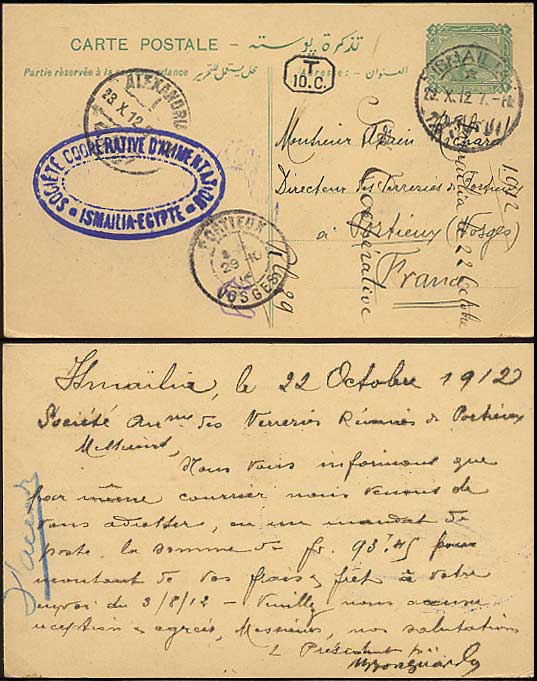 CARTE POSTALE - تذكرة پوسته
Partie réservée à la correspondance
Adresse: العنوان
T
10.C.
ALEXANDRIA
23.X.12
ISMAILIA
23.X.12
SOCIÉTÉ COOPÉRATIVE D'ALIMENTATION
ISMAILIA-EGYPTE
Monsieur Adrien Richard
Directeur des Verreries de Portieux
à Portieux (Vosges)
France
PORTIEUX
29 10
VOSGES
Coopérative
Ismaïlia, le 22 Octobre 1912
Société Anme des Verreries Réunies de Portieux
Messieurs,
Nous vous informons que
par même courrier nous venons de
vous adresser, en un mandat de
poste, la somme de fr. 93.45 pour
montant de vos frais & fret à votre
envoi du 3/8/12 - Veuillez nous accuser
réception & agréer, Messieurs, nos salutations
Le Président